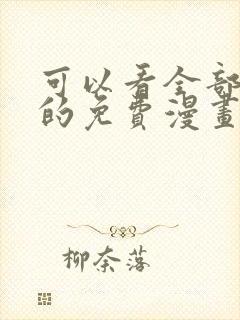 可以看全部
的免費漫畫
柳奈落